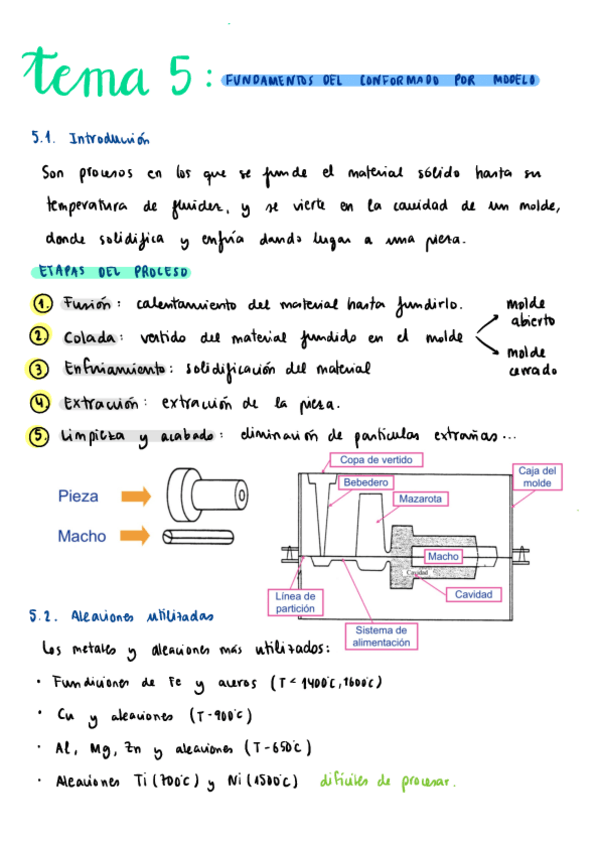 tema 5: FUNDAMENTOS DEL CONFORMADO POR MODELO
5.1. Introducción
Son procesos en los que se funde el material sólido hasta su
temperatura de fluidez, y se vierte en la cavidad de un molde,
donde solidifica y enfría dando lugar a una pieza.
ETAPAS DEL PROCESO
1. Fusión: calentamiento del material hasta fundirlo.
2. Colada: vertido del material fundido en el molde
molde
abierto
molde
cerrado
3 Enfriamiento: solidificación del material
4. Extracción: extracción de la pieza.
5. Limpieza y acabado: eliminación de partículas extrañas...
Pieza
Macho
Copa de vertido
Bebedero
Mazarota
Caja del
molde
Macho
Cavidad
Cavidad
Línea de
partición
Sistema de
alimentación
5.2. Aleaciones utilizadas
Los metales y aleaciones más utilizados:
· Fundiciones de Fe y aceros (T < 1400°C, 1600°C)
· Cu y aleaciones (T-900°C)
· Al, Mg, Zn y aleaciones (T-650°C)
· Aleaciones Ti (700°C) y Ni (1500°C) difíciles de procesar.